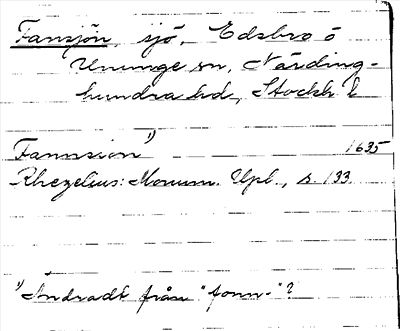 Fansjön, sjö, Edsbro o
Ununge sn, Närding-
hundra hd, Stockh. l
Fannsion 1) 1635
Rhezelius: Monum. Upl., s. 133
1) Ändradt från "fonn-"?